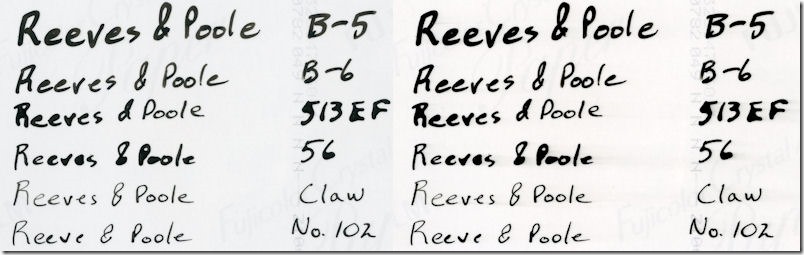 Reeves & Poole B-5
Reeves & Poole B-6
Reeves & Poole 513EF
Reeves & Poole 56
Reeves & Poole Claw
Reeve & Poole No. 102
Reeves & Poole B-5
Reeves & Poole B-6
Reeves & Poole 513EF
Reeves & Poole 56
Reeves & Poole Claw
Reeve & Poole No. 102
Fujicolor Crystal
Fujicolor Crystal